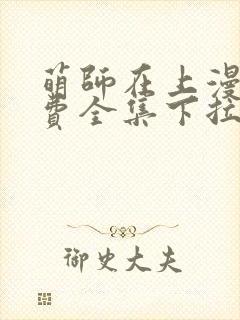 萌师在上漫
费全集下拉
御史大夫